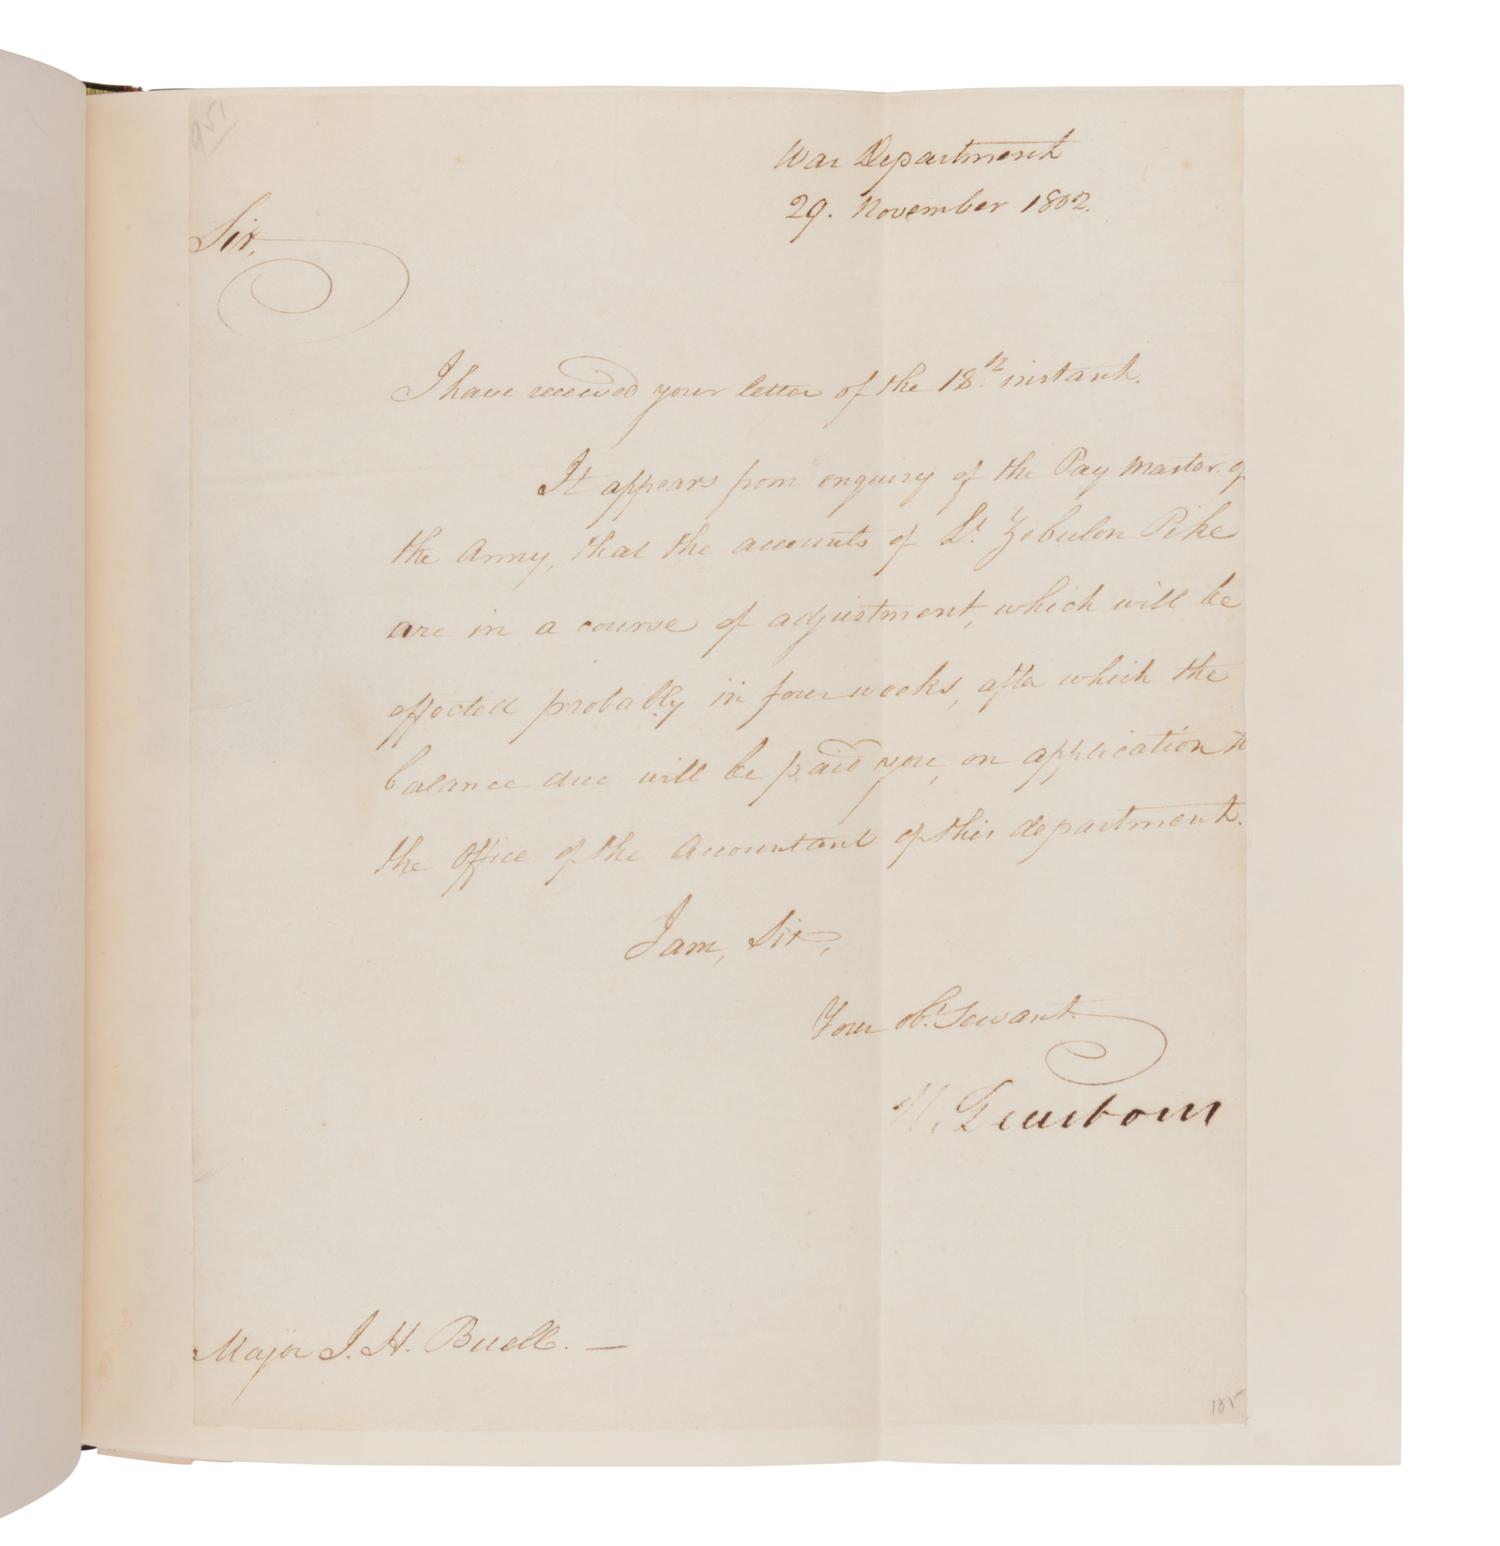 951
War Department
29. November 1802.
Sir,
I have received your letter of the 18th instant.
It appears from enquiry of the Pay Master of
the Army, that the accounts of Lt. Zebulon Pike
are in a course of adjustment, which will be
effected probably in four weeks, after which the
balance due will be paid you, on application to
the Office of the Accountant of this department.
I am, Sir,
Your obt. Servant.
H. Dearborn
Major J. H. Buell. —